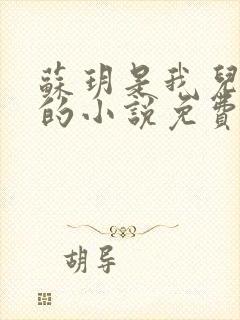 蘇玥是我兒
的小說免費
胡导